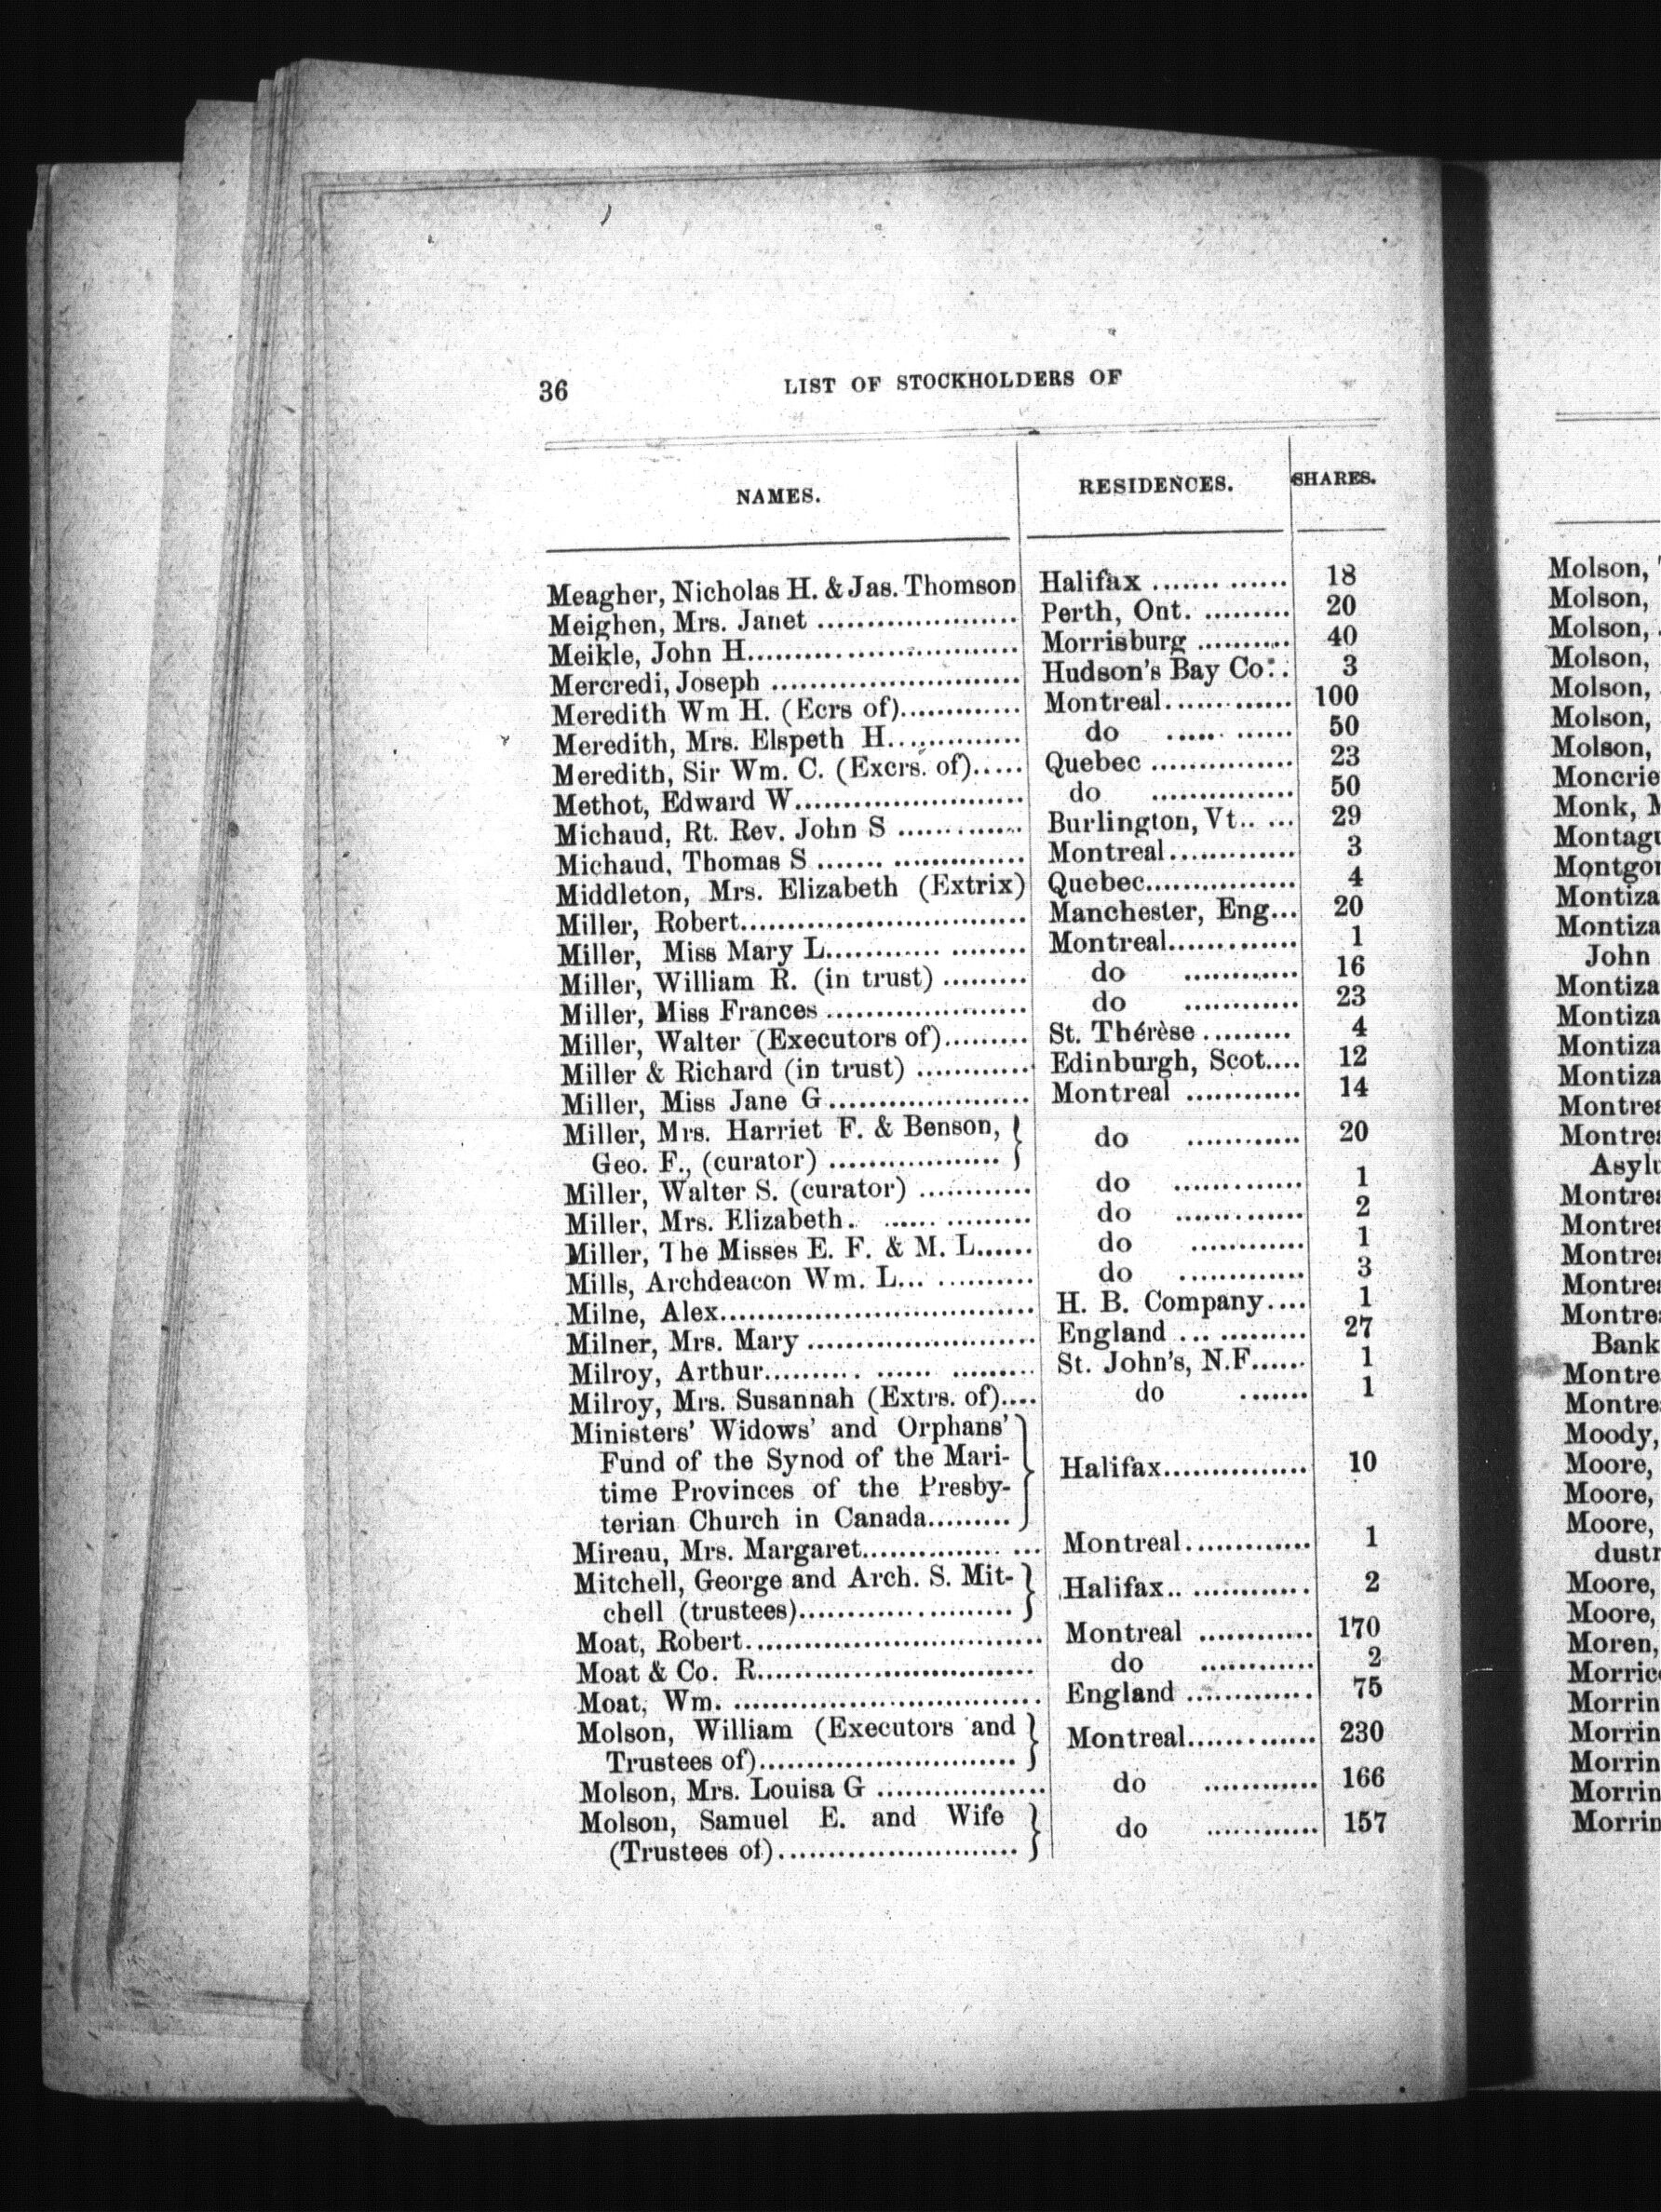 36 LIST OF STOCKHOLDERS OF
NAMES. RESIDENCES. SHARES.
Meagher, Nicholas H. & Jas. Thomson Halifax ............. 18
Meighen, Mrs. Janet .................... Perth, Ont. ......... 20
Meikle, John H............................ Morrisburg .......... 40
Mercredi, Joseph ......................... Hudson's Bay Co.. 3
Meredith Wm H. (Ecrs of)............ Montreal............. 100
Meredith, Mrs. Elspeth H............. do ............ 50
Meredith, Sir Wm. C. (Excrs. of)..... Quebec ............... 23
Methot, Edward W....................... do ............... 50
Michaud, Rt. Rev. John S ............. Burlington, Vt.. ... 29
Michaud, Thomas S ..................... Montreal............. 3
Middleton, Mrs. Elizabeth (Extrix) Quebec................ 4
Miller, Robert............................. Manchester, Eng... 20
Miller, Miss Mary L.................... Montreal............. 1
Miller, William R. (in trust) ......... do ............ 16
Miller, Miss Frances ..................... do ............ 23
Miller, Walter (Executors of)......... St. Thérèse ......... 4
Miller & Richard (in trust) ............ Edinburgh, Scot.... 12
Miller, Miss Jane G..................... Montreal ............ 14
Miller, Mrs. Harriet F. & Benson,
Geo. F., (curator) .................. do ............ 20
Miller, Walter S. (curator) ............ do ............. 1
Miller, Mrs. Elizabeth. ............... do ............. 2
Miller, The Misses E. F. & M. L...... do ............ 1
Mills, Archdeacon Wm. L... .......... do ............. 3
Milne, Alex................................ H. B. Company.... 1
Milner, Mrs. Mary ....................... England ... ......... 27
Milroy, Arthur.......... ...... ......... St. John's, N.F...... 1
Milroy, Mrs. Susannah (Extrs. of).... do ....... 1
Ministers' Widows' and Orphans'
Fund of the Synod of the Mari-
time Provinces of the Presby-
terian Church in Canada......... Halifax............... 10
Mireau, Mrs. Margaret............... ... Montreal............. 1
Mitchell, George and Arch. S. Mit-
chell (trustees)...................... Halifax.. ............ 2
Moat, Robert.............................. Montreal ............ 170
Moat & Co. R............................ do ............ 2
Moat, Wm. ............................... England ............. 75
Molson, William (Executors and
Trustees of).......................... Montreal............. 230
Molson, Mrs. Louisa G ................. do ............ 166
Molson, Samuel E. and Wife
(Trustees of)........................ do ............ 157
Molson,
Molson,
Molson,
Molson,
Molson,
Molson,
Molson,
Moncrie
Monk, M
Montagu
Montgor
Montiza
Montiza
John
Montiza
Montiza
Montiza
Montiza
Montrea
Montrea
Asylu
Montrea
Montrea
Montrea
Montrea
Montrea
Bank
Montre
Montre
Moody,
Moore,
Moore,
Moore,
dustr
Moore,
Moore,
Moren,
Morric
Morrin
Morrin
Morrin
Morrin
Morrin